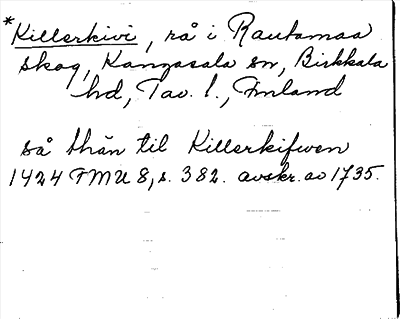 *Killerkivi, rå i Rautamaa
skog, Kangasala sn, Birkkala
hd, Tav. l., Finland
så thän til Killerkifwen
1424 FMU 8, s. 382. avskr. av 1735.